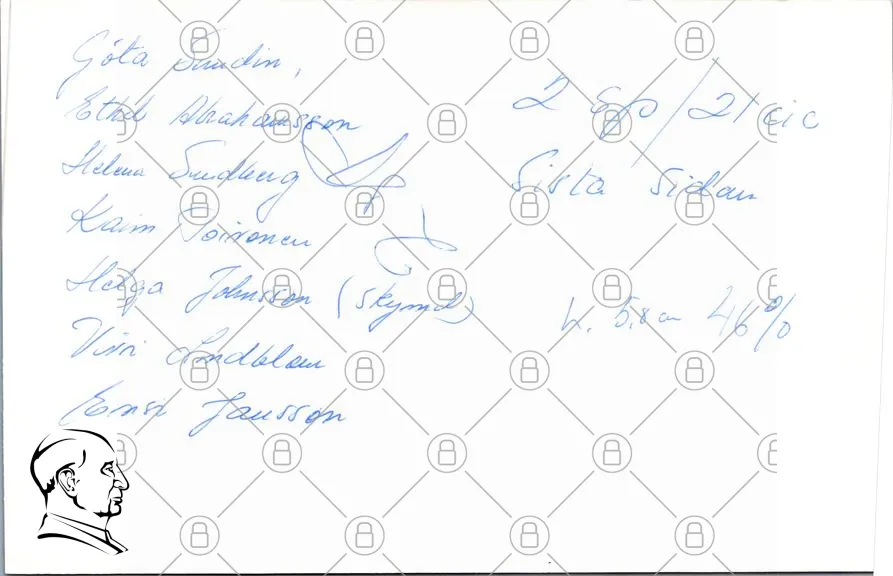 Göta Sundin,
Ethel Abrahamsson
Helena Sundberg
Karin Toivonen
Helga Johnsson (skymd)
Viri Lindblom
Ensi Jansson
2 sp / 21 cic
Sista sidan
h. 5,8 cm 46%